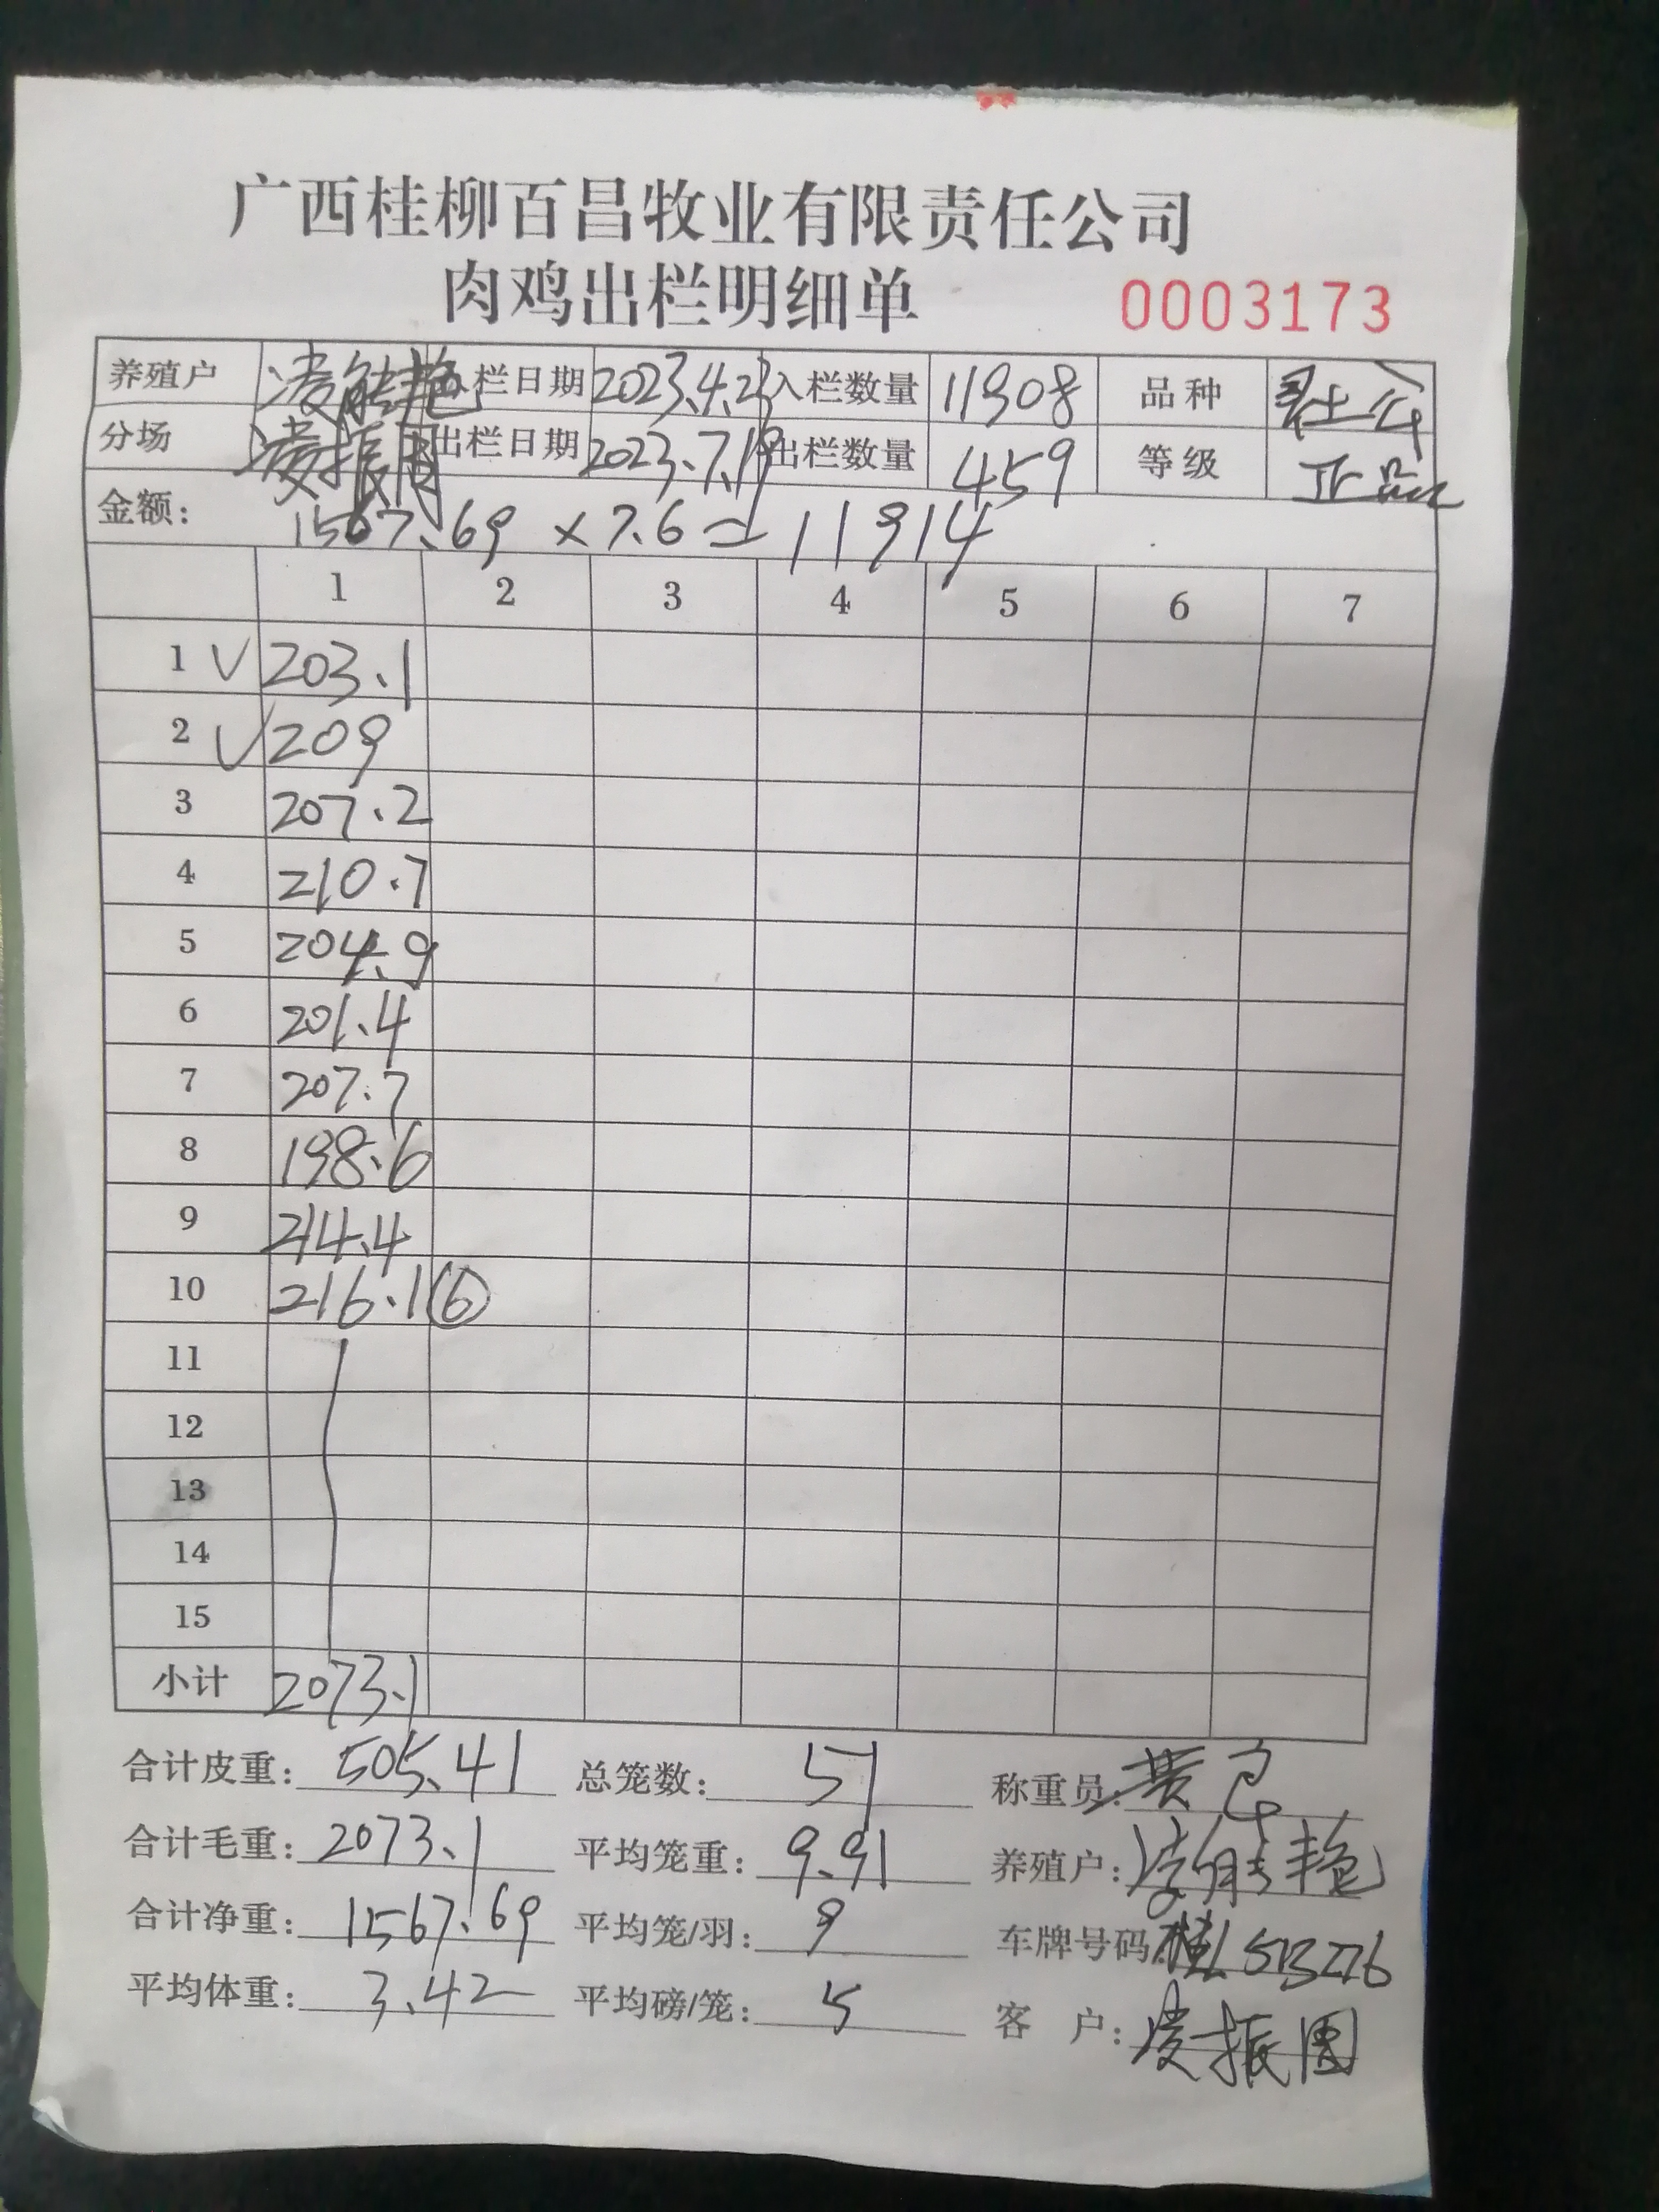 广西桂柳百昌牧业有限责任公司
肉鸡出栏明细单 0003173
养殖户 凌能艳 入栏日期 2023.4.23 入栏数量 11908 品种 土公
分场 凌振周 出栏日期 2023.7.19 出栏数量 459 等级 正品
金额: 1567.69 × 7.6 = 11914
1 2 3 4 5 6 7
1 √ 203.1
2 √ 209
3 207.2
4 210.7
5 204.9
6 201.4
7 207.7
8 198.6
9 214.4
10 216.1 ⑥
11
12
13
14
15
小计 2073.1
合计皮重: 505.41 总笼数: 51 称重员: 黄
合计毛重: 2073.1 平均笼重: 9.91 养殖户: 凌能艳
合计净重: 1567.69 平均笼/羽: 9 车牌号码: 桂L
平均体重: 3.42 平均磅/笼: 5 客 户: 凌振周